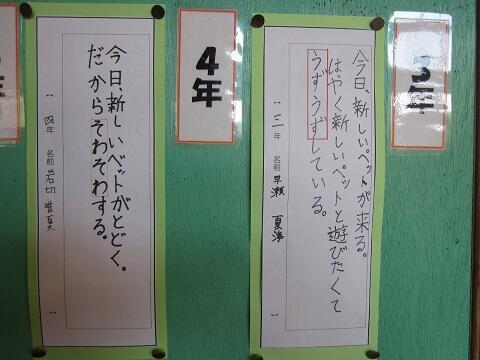 3年
今日、新しいペットが来る。
はやく新しいペットと遊びたくて
うずうずしている。
【 三年 名前 早瀬 夏 】
4年
今日、新しいベットがとどく。
だからそわそわする。
【 四年 名前 岩切 唯夏 】
年